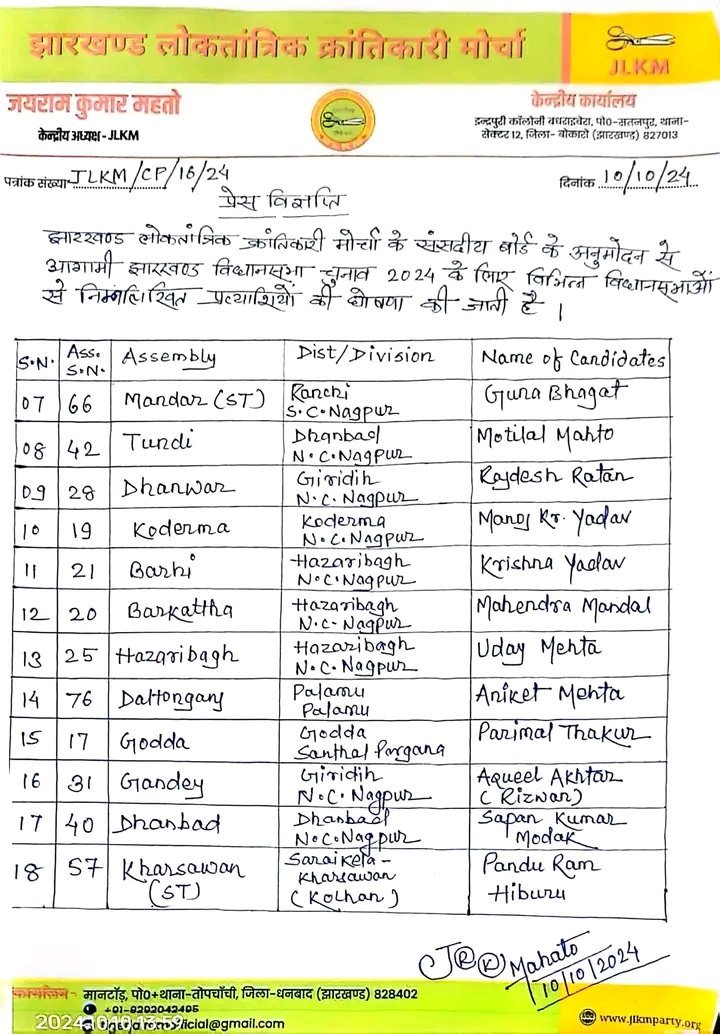 झारखण्ड लोकतांत्रिक क्रांतिकारी मोर्चा
JLKM
जयराम कुमार महतो
केन्द्रीय अध्यक्ष - JLKM
केन्द्रीय कार्यालय
इन्द्रपुरी कॉलोनी बधराइबेरा, पो०-सतनपुर, थाना-
सेक्टर 12, जिला- बोकारो (झारखण्ड) 827013
पत्रांक संख्या JLKM/CP/16/24
दिनांक 10/10/24
प्रेस विज्ञप्ति
झारखण्ड लोकतांत्रिक क्रांतिकारी मोर्चा के संसदीय बोर्ड के अनुमोदन से
आगामी झारखण्ड विधानसभा चुनाव 2024 के लिए विभिन्न विधानसभाओं
से निम्नलिखित प्रत्याशियों की घोषणा की जाती है।
S.N. Ass. S.N. Assembly Dist/Division Name of Candidates
07 66 Mandar (ST) Ranchi S.C.Nagpur Guna Bhagat
08 42 Tundi Dhanbad N.C.Nagpur Motilal Mahto
09 28 Dhanwar Giridih N.C.Nagpur Rajdesh Ratan
10 19 Koderma Koderma N.C.Nagpur Manoj Kr. Yadav
11 21 Barhi Hazaribagh N.C.Nagpur Krishna Yadav
12 20 Barkattha Hazaribagh N.C.Nagpur Mahendra Mandal
13 25 Hazaribagh Hazaribagh N.C.Nagpur Uday Mehta
14 76 Daltonganj Palamu Palamu Aniket Mehta
15 17 Godda Godda Santhal Pargana Parimal Thakur
16 31 Gandey Giridih N.C.Nagpur Aqueel Akhtar (Rizwan)
17 40 Dhanbad Dhanbad N.C.Nagpur Sapan Kumar Modak
18 57 Kharsawan (ST) Saraikela - Kharsawan (Kolhan) Pandu Ram Hiburu
Mahato
10/10/2024
कार्यालय - मानटाँड़, पो०+थाना-तोपचाँची, जिला-धनबाद (झारखण्ड) 828402
+91-9202042495
official@gmail.com
www.jlkmparty.org